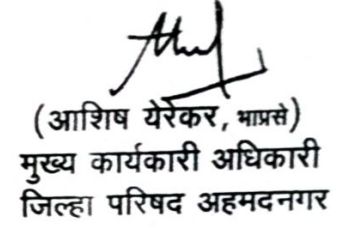 (आशिष येरेकर, भाप्रसे)
मुख्य कार्यकारी अधिकारी
जिल्हा परिषद अहमदनगर